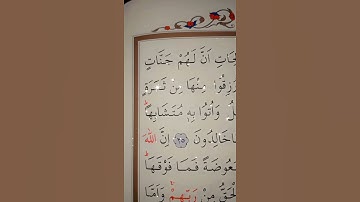 حَاتِ اَنَّ لَهُمْ جَنَّاتٍ
رُزِقُوا مِنْهَا مِنْ ثَمَرَةٍ
لُ وَاُتُوا بِهِ مُتَشَابِهًا
خَالِدُونَ ﴿٢٥﴾ اِنَّ اللّٰهَ
بَعُوضَةً فَمَا فَوْقَهَا
الْحَقُّ مِنْ رَبِّهِمْ وَاَمَّا